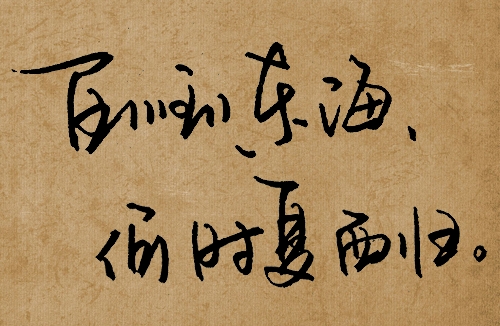 百川到东海、
何时复西归。